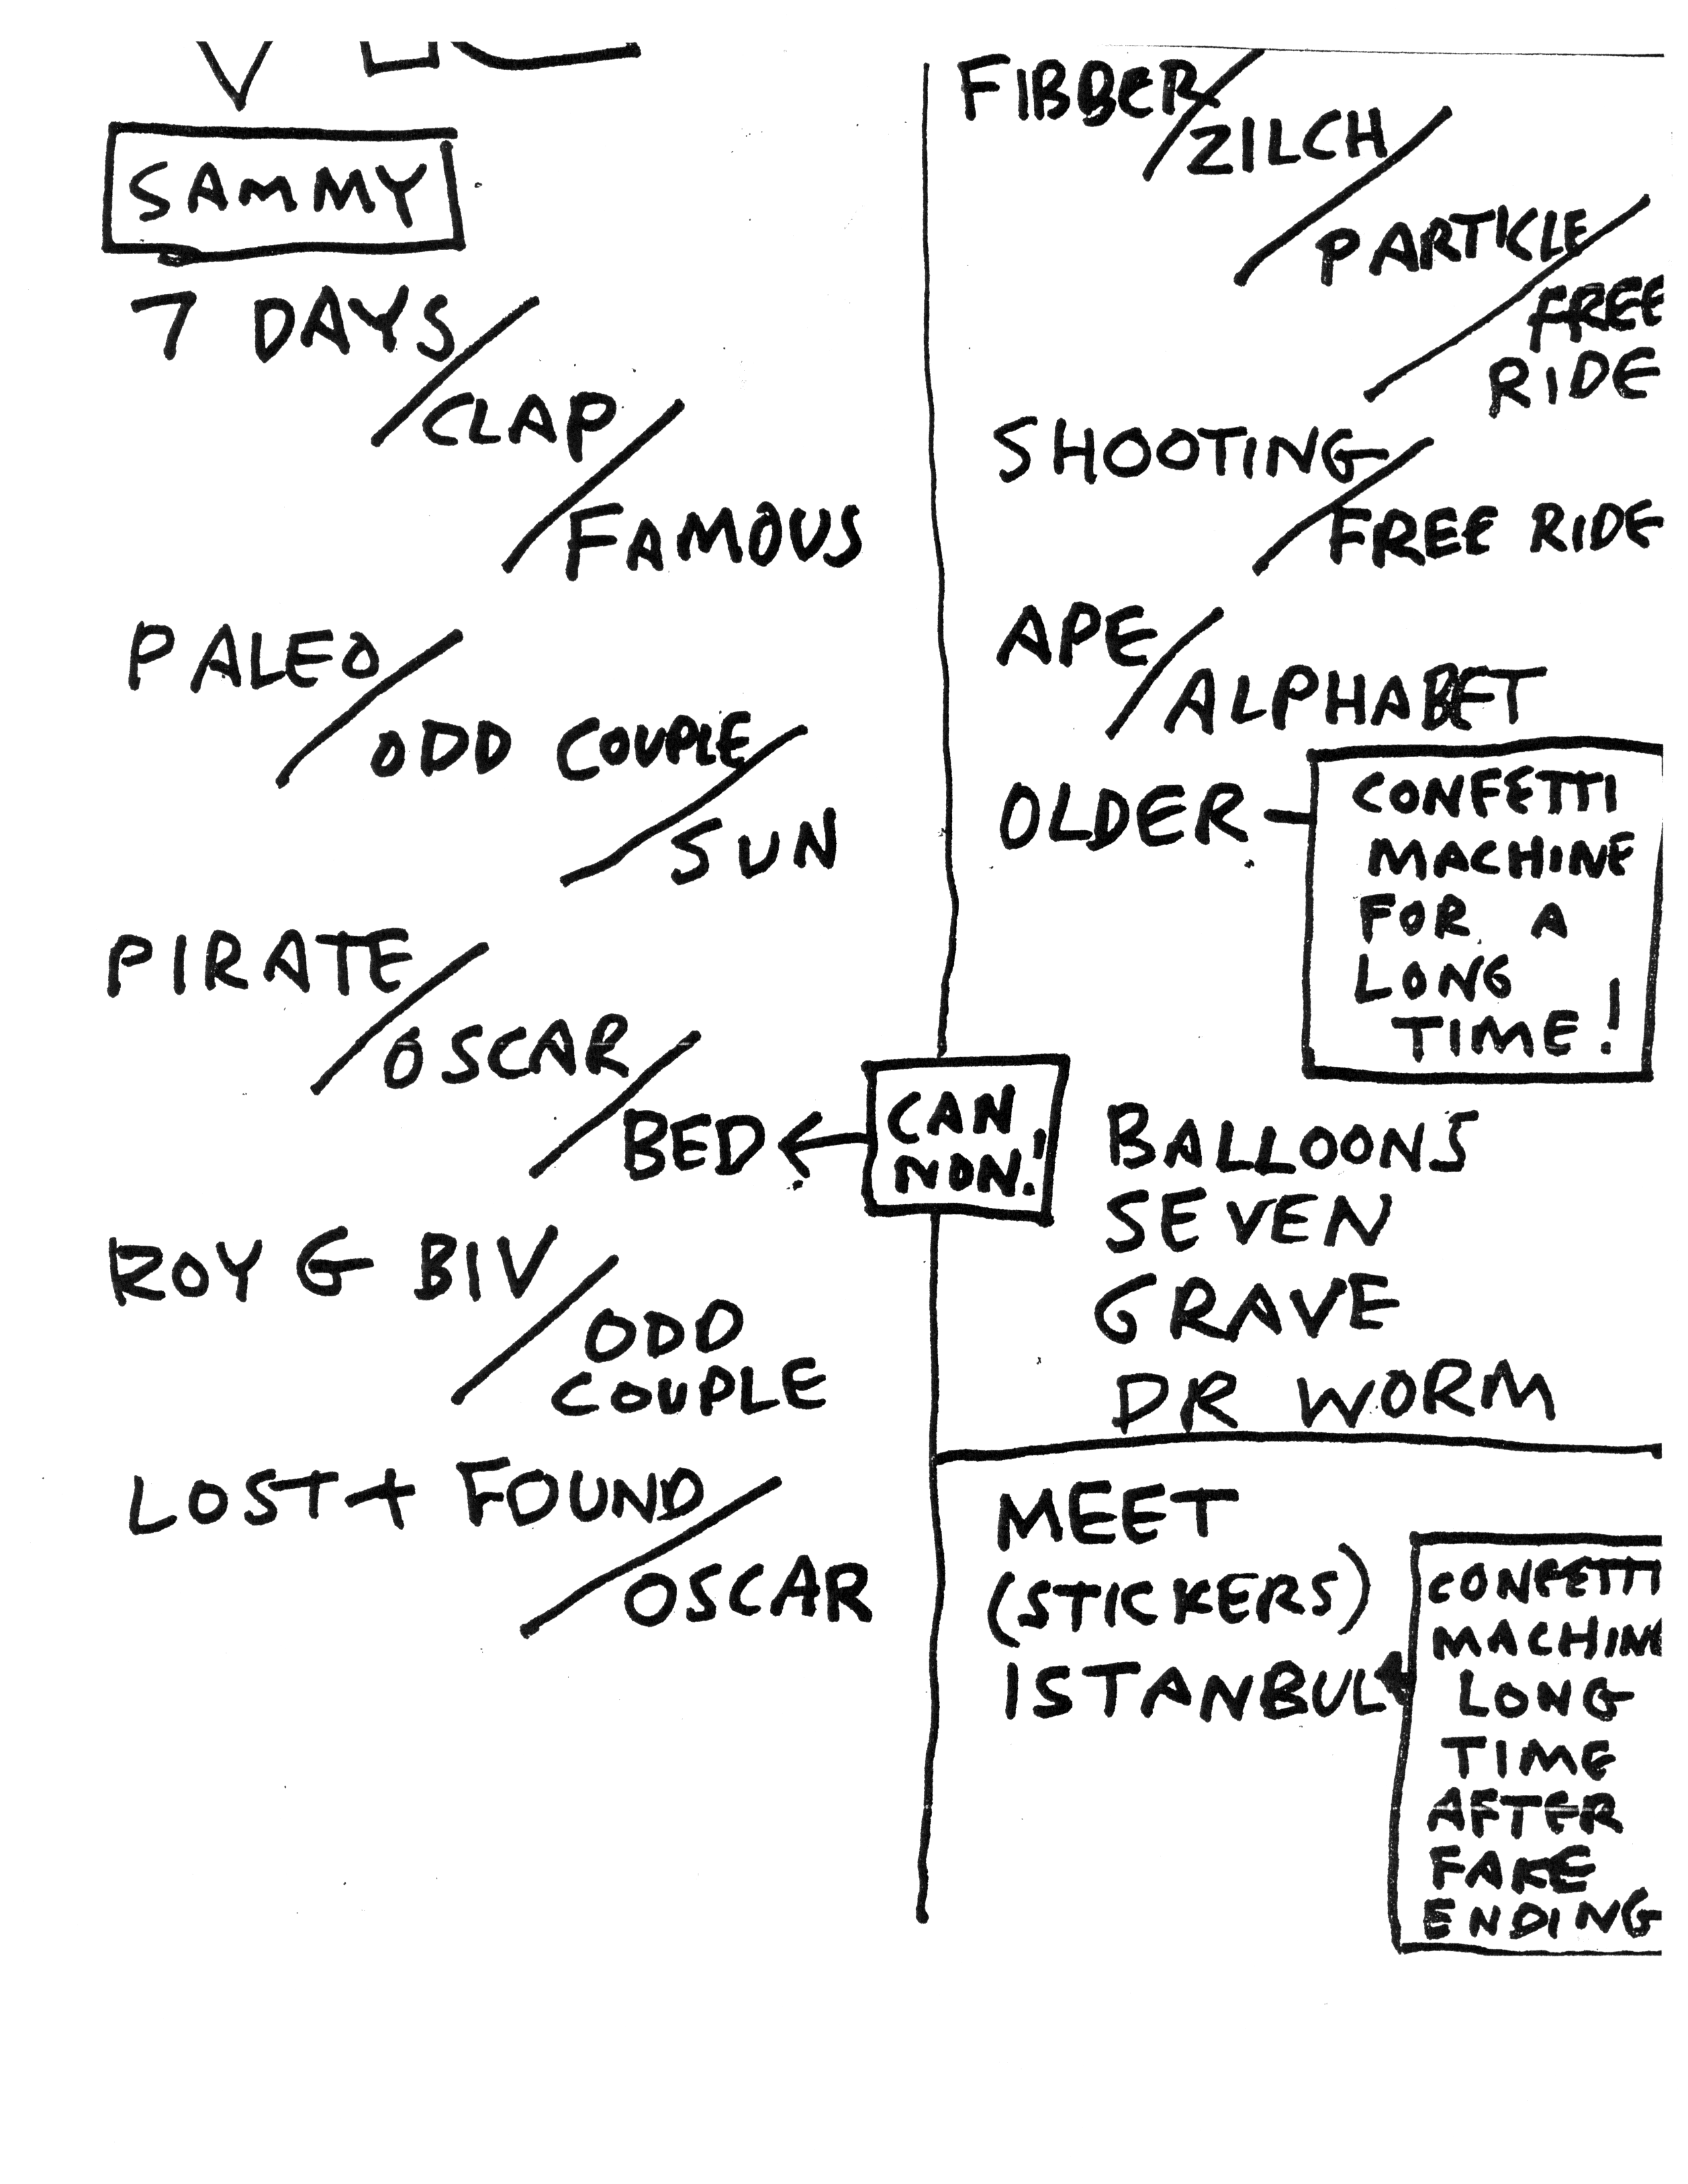 SAMMY
7 DAYS/
CLAP/
FAMOUS
PALEO/
ODD COUPLE/
SUN
PIRATE/
OSCAR/
BED
CAN
NON!
ROY G BIV/
ODD
COUPLE
LOST + FOUND/
OSCAR
FIBBER/
ZILCH/
PARTICLE/
FREE
RIDE
SHOOTING/
FREE RIDE
APE/
ALPHABET
OLDER -
CONFETTI
MACHINE
FOR A
LONG
TIME!
BALLOONS
SEVEN
GRAVE
DR WORM
MEET
(STICKERS)
ISTANBUL
CONFETTI
MACHIN
LONG
TIME
AFTER
FAKE
ENDING